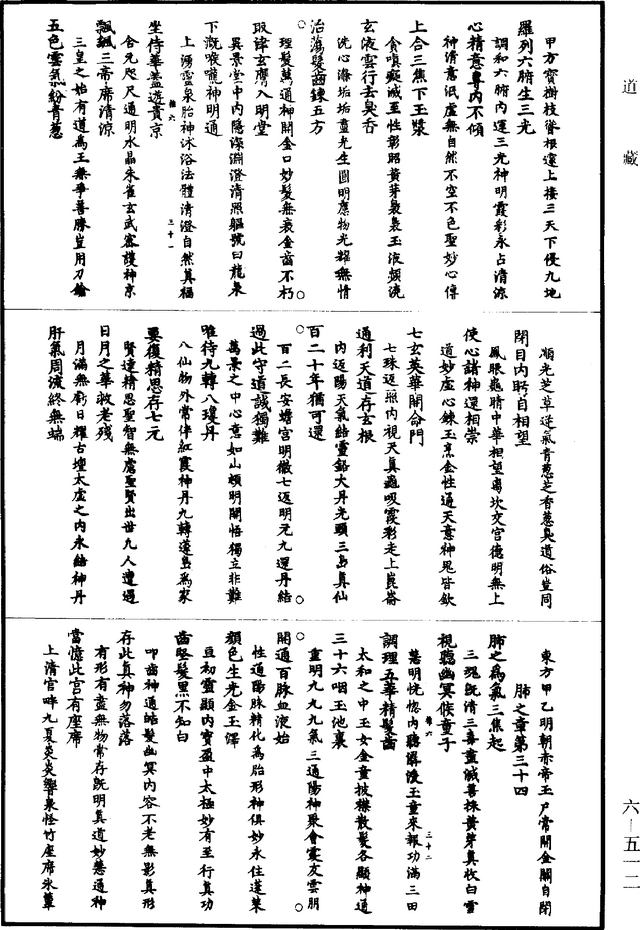 道藏
甲方寳樹枝聳根遠上接三天下侵九地
羅列六腑生三光
調和六腑內運三光神明霞彩永占清涼
心精意專內不傾
神清意泯虛無自然不空不色聖妙心傳
上合三焦下玉漿
貪嗔癡滅至性彰昭黃芽裊裊玉液頻流
玄液雲行去臭香
洗心滌垢垢盡光生圓明應物光耀無情
治蕩髮齒鍊五方
理髮萬通神開金口妙髮無衰金齒不朽
取津玄膺入明堂
異景堂中內隱深淵澄清照軀號曰龍泉
下溉喉嚨神明通
上湧靈泉胎神沐浴法體清澄自然真福
推六
三十一
坐侍華蓋遊貴京
含元咫尺通明水晶朱雀玄武密護神京
飄颻三帝席清涼
三皇之始有道為王無爭善勝豈用刀鎗
五色雲氣紛青蔥
順光芝草逆氣青蔥芝香蔥臭道俗豈同
閉目內眄自相望
鳳眼龜睛中華相望离坎交宮德明無上
使心諸神還相崇
道妙虛心鍊玉烹金性通天意神鬼皆欽
七玄英華開命門
七珠返照內視天真龜吸霞彩走上崑崙
通利天道存玄根
內返陽天氣結靈鉛大丹光顯三島真仙
百二十年猶可還
百二長安蟾宮明徹七返明元九還丹結
過此守道誠獨難
萬景之中心意如山頓明開悟獨立非難
唯待九轉八瓊丹
八仙物外常伴紅霞神丹九轉蓬島為家
要復精思存七元
賢達精思聖智無虛聖賢出世九人遭遇
日月之華救老殘
月滿無虧日耀古壇太虛之內永結神丹
肝氣周流終無端
東方甲乙明朝赤帝玉戶常開金關自閉
肺之章第三十四
肺之為氣三焦起
三魂既清三毒盡滅善採黃芽真收白雪
視聽幽冥候童子
慧明恍惚內聽潺湲玉童來報功滿三田
推六
三十二
調理五華精髮齒
太和之中玉女金童披襟散髮各顯神通
三十六咽玉池裏
童明九九九氣三通陽神聚會靈友雲朋
開通百脉血液始
性通陽脉精化為胎形神俱妙永住蓬萊
顏色生光金玉澤
豆初靈顯內實盈中太極妙有至行真功
齒堅髮黑不知白
叩齒神通皓髮幽冥內容不老無影真形
存此真神勿落落
有形有盡無物常存既明真道妙慧通神
當憶此宮有座席
上清宮畔九夏炎炎響泉怪竹座席氷簟
六—五一二